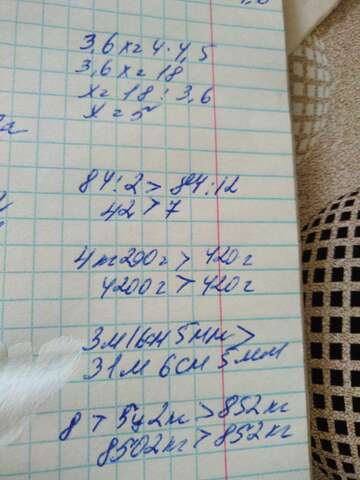 3,6x=4·4,5
3,6x=18
x=18:3,6
x=5
84:2>84:12
42>7
4кг200г>420г
4200г>420г
3м16см5мм>
31м 6см 5мм
8т 5ц2кг>852кг
8502кг>852кг